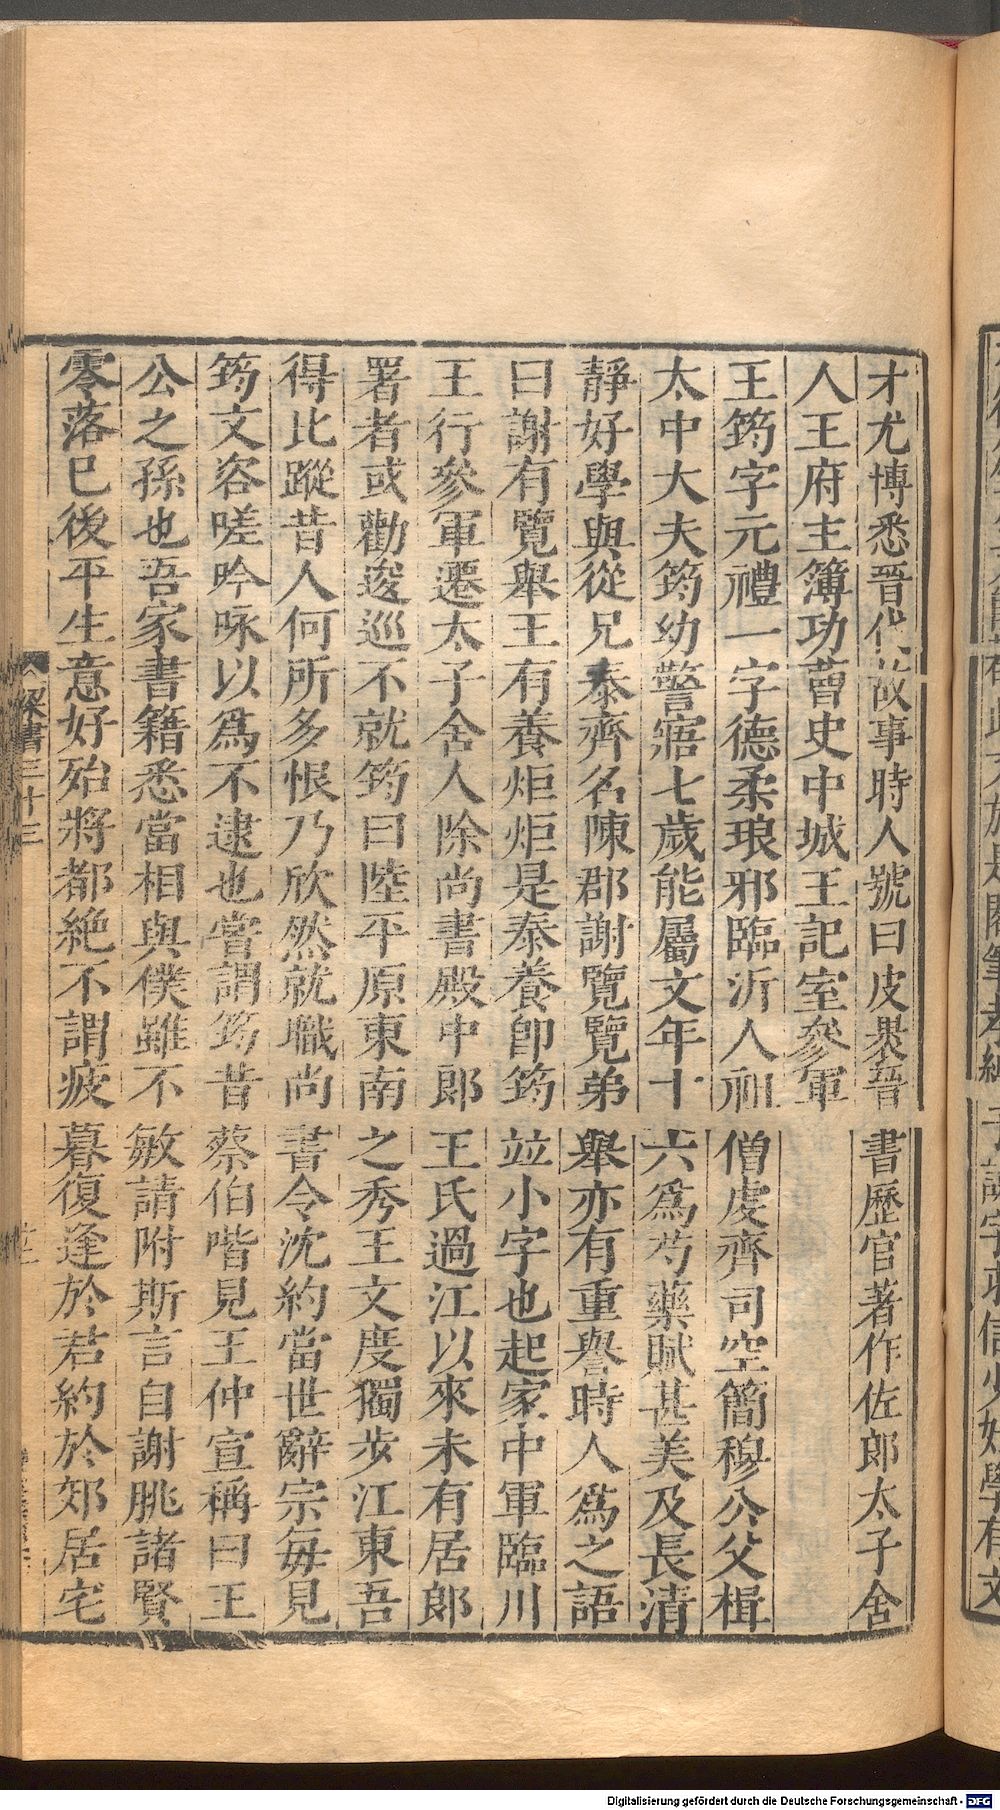 才尤博悉晉代故事時人號曰皮裏晉書歷官著作佐郎太子舍
人王府主簿功曹史中城王記室參軍
王筠字元禮一字德柔琅邪臨沂人祖僧虔齊司空簡穆公父楫
太中大夫筠幼警寤七歲能屬文年十六爲芍藥賦甚美及長清
靜好學與從兄泰齊名陳郡謝覽覽弟舉亦有重譽時人爲之語
曰謝有覽舉王有養炬炬是泰養卽筠竝小字也起家中軍臨川
王行參軍遷太子舍人除尚書殿中郎王氏過江以來未有居郎
署者或勸逡巡不就筠曰陸平原東南之秀王文度獨步江東吾
得比蹤昔人何所多恨乃欣然就職尚書令沈約當世辭宗每見
筠文咨嗟吟咏以爲不逮也嘗謂筠昔蔡伯喈見王仲宣稱曰王
公之孫也吾家書籍悉當相與僕雖不敏請附斯言自謝朓諸賢
零落已後平生意好殆將都絶不謂疲暮復逢於君約於郊居宅
梁書三十三
Digitalisierung gefördert durch die Deutsche Forschungsgemeinschaft - DFG